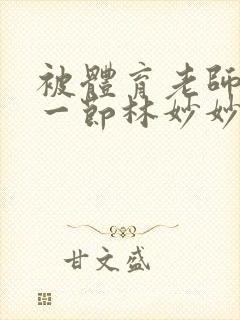 被體育老師
一節林妙妙
甘文盛